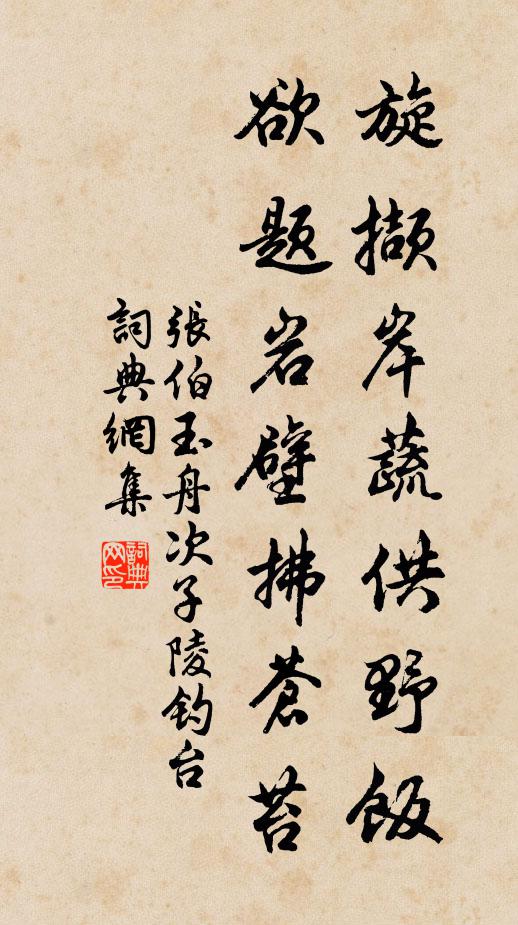 旋擷岸蔬供野飯
欲题岩壁拂蒼苔
張伯玉舟次子陵钓台
詞典網集
詞典网印